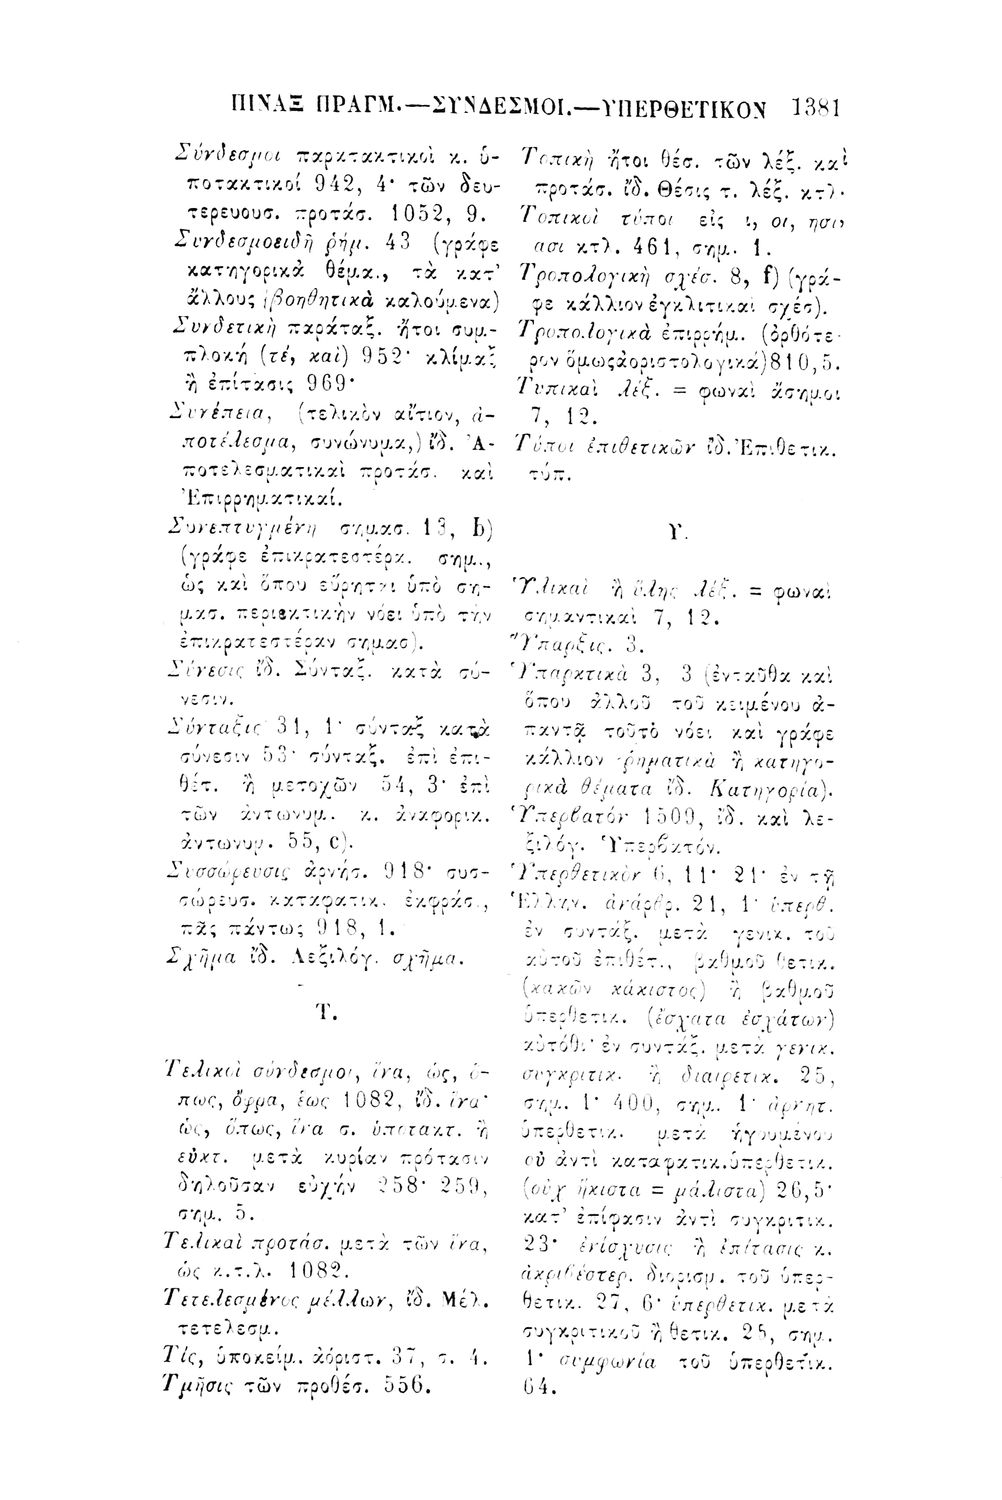 ΠΙΝΑΞ ΠΡΑΓΜ.—ΣΥΝΔΕΣΜΟΙ.—ΥΠΕΡΘΕΤΙΚΟΝ 1381
Σύνδεσμοι παρατακτικοὶ κ. ὑ-
ποτακτικοί 942, 4· τῶν δευ-
τερευουσ. προτάσ. 1052, 9.
Συνδεσμοειδῆ ῥήμ. 43 (γράφε
κατηγορικὰ θέμα., τὰ κατ'
ἄλλους βοηθητικὰ καλούμενα)
Συνδετικὴ παράταξ. ἤτοι συμ-
πλοκή (τέ, καί) 952· κλίμαξ
ἢ ἐπίτασις 969·
Συνέπεια, (τελικὸν αἴτιον, ἀ-
ποτέλεσμα, συνώνυμα,) ἴδ. Ἀ-
ποτελεσματικαὶ προτάσ. καὶ
Ἐπιρρηματικαί.
Συνεπτυγμένη σημασ. 13, b)
(γράφε ἐπικρατεστέρα. σημ.,
ὡς καὶ ὅπου εὕρηται ὑπὸ ση-
μασ. περιεκτικὴν νόει ὑπὸ τὴν
ἐπικρατεστέραν σημασ).
Σύνεσις ἴδ. Σύνταξ. κατὰ σύ-
νεσιν.
Σύνταξις 31, 1· σύνταξ κατὰ
σύνεσιν 53· σύνταξ. ἐπὶ ἐπι-
θέτ. ἢ μετοχῶν 54, 3· ἐπὶ
τῶν ἀντωνυμ. κ. ἀναφορικ.
ἀντωνυμ. 55, c).
Συσσώρευσις ἀρνήσ. 918· συσ-
σώρευσ. καταφατικ. ἐκφράσ.,
πᾶς πάντως 918, 1.
Σχῆμα ἴδ. Λεξιλόγ. σχῆμα.
Τ.
Τελικοὶ σύνδεσμοι, ἵνα, ὡς, ὅ-
πως, ὄφρα, ἕως 1082, ἴδ. ἵνα·
ὡς, ὅπως, ἵνα σ. ὑποτακτ. ἢ
εὐκτ. μετὰ κυρίαν πρότασιν
δηλοῦσαν εὐχήν 258· 259,
σημ. 5.
Τελικαὶ προτάσ. μετὰ τῶν ἵνα,
ὡς κ.τ.λ. 1082.
Τετελεσμένος μέλλων, ἴδ. Μέλ.
τετελεσμ.
Τίς, ὑποκείμ. ἀόριστ. 37, σ. 4.
Τμῆσις τῶν προθέσ. 556.
Τοπικὴ ἤτοι θέσ. τῶν λέξ. καὶ
προτάσ. ἴδ. Θέσις τ. λέξ. κτλ.
Τοπικοὶ τύποι εἰς ι, οι, ησι
ασι κτλ. 461, σημ. 1.
Τροπολογικὴ σχέσ. 8, f) (γρά-
φε κάλλιον ἐγκλιτικαὶ σχέσ).
Τροπολογικὰ ἐπιρρήμ. (ὀρθότε-
ρον ὅμως ἀοριστολογικά) 810, 5.
Τυπικαὶ λέξ. = φωναὶ ἄσημοι
7, 12.
Τύποι ἐπιθετικῶν ἴδ. Ἐπιθετικ.
τύπ.
Υ.
Ὑλικαὶ ἢ ὕλης λέξ. = φωναὶ
σημαντικαὶ 7, 12.
Ὕπαρξις. 3.
Ὑπαρκτικὰ 3, 3 (ἐνταῦθα καὶ
ὅπου ἀλλοῦ τοῦ κειμένου ἀ-
παντᾷ τοῦτὸ νόει καὶ γράφε
κάλλιον ῥηματικὰ ἢ κατηγο-
ρικὰ θέματα ἴδ. Κατηγορία).
Ὑπερβατόν 1509, ἴδ. καὶ λε-
ξιλόγ. Ὑπερβατόν.
Ὑπερθετικὸν 6, 11· 21· ἐν τῇ
Ἑλλην. ἀνάρθρ. 21, 1· ὑπερθ.
ἐν συντάξ. μετὰ γενικ. τοῦ
αὐτοῦ ἐπιθέτ., βαθμοῦ θετικ.
(κακῶν κάκιστος) ἢ βαθμοῦ
ὑπερθετικ. (ἔσχατα ἐσχάτων)
αὐτόθι· ἐν συντάξ. μετὰ γενικ.
συγκριτικ. ἢ διαιρετικ. 25,
σημ. 1· 400, σημ. 1· ἀρνητ.
ὑπερθετικ. μετὰ ἡγουμένου
οὐ ἀντὶ καταφατικ. ὑπερθετικ.
(οὐχ ἥκιστα = μάλιστα) 26,5·
κατ' ἐπίφασιν ἀντὶ συγκριτικ.
23· ἐνίσχυσις ἢ ἐπίτασις κ.
ἀκριβέστερ. διορισμ. τοῦ ὑπερ-
θετικ. 27, 6· ὑπερθετικ. μετὰ
συγκριτικοῦ ἢ θετικ. 28, σημ.
1· συμφωνία τοῦ ὑπερθετικ.
64.